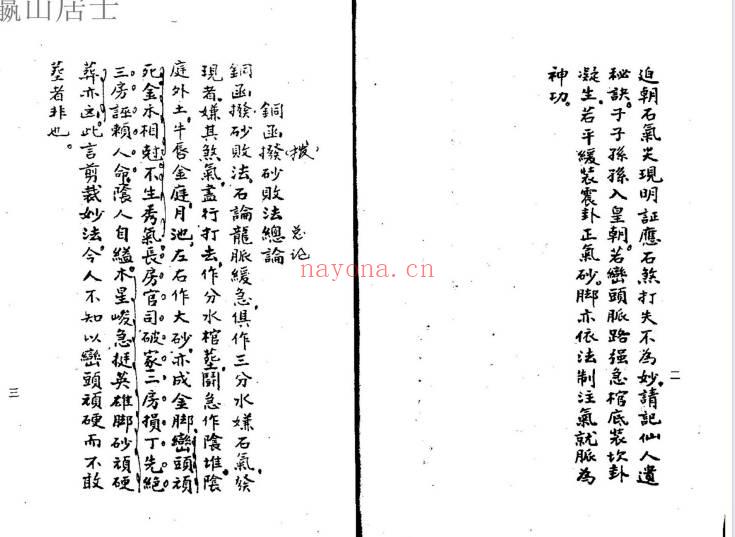 瀛山居士
迫朝石氣尖現明証應石煞打失不為妙請記仙人遺
秘訣子子孫孫入皇朝若巒頭脈路强急棺底裝坎卦
凝生若平緩裝震卦正氣砂脚亦依法制注氣就脈為
神功。
二
銅函撥砂敗法總論
(撥) 总论
銅函撥砂敗法石論龍脈緩急俱作三分水嫌石氣發
現者嫌其煞氣盡行打去作分水棺塟鬪急作陰堆陰
庭外土牛唇金庭月池左右作大砂亦成金脚巒頭頑
死金木相尅不生秀氣長房官司破家二房損丁先絕
三房誣賴人命陰人自縊木星峻急挺英雄脚砂頑硬
葬亦凶此言剪裁妙法今人不知以巒頭頑硬而不敢
塟者非也。
三
nayona.cn